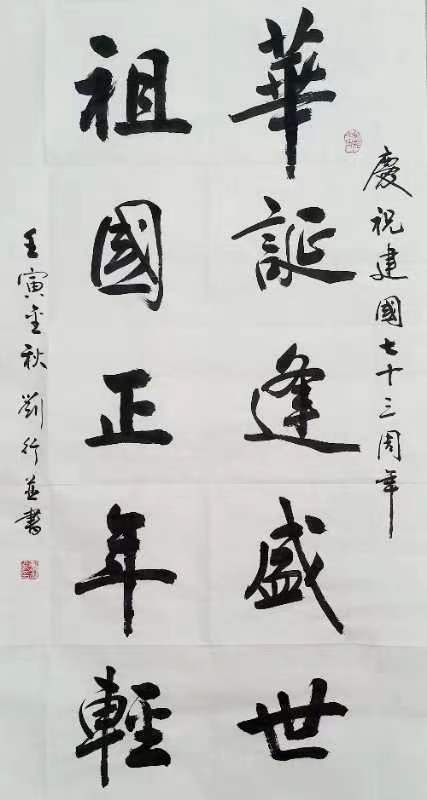 慶祝建國七十三周年
華誕逢盛世
祖國正年輕
壬寅金秋劉行並書